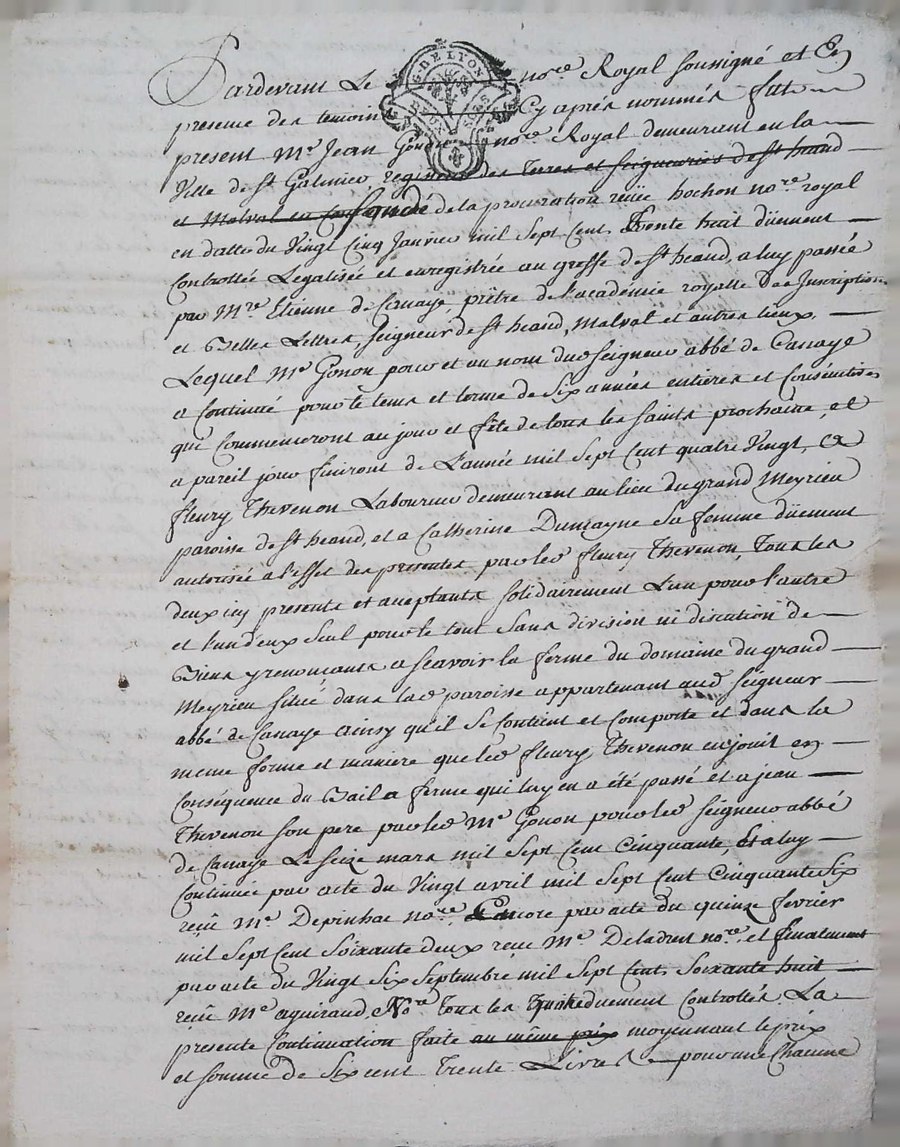 Pardevant Le no.re Royal soussigné et En
presence des temoins Cy aprés nommés fut
present M.e Jean Gonon no.re Royal demeurant en la
Ville de St Galmier regisseur des terres et seigneuries de St heand
et Malval en fondé de la procuration reüe hochon no.re royal
en datte du Vingt Cinq Janvier mil Sept Cent Trente huit düement
Controllée Legalisée et enregistrée au greffe de St heand, a luy passée
par M.re Etienne de Canaye, prêtre de l'académie royalle Des Inscriptions
et Belles Lettres, seigneur de St heand, Malval et autres lieux,
Lequel M.e Gonon pour et au nom dud seigneur abbé de Canaye
a Continué pour le tems et terme de Six années entieres et Consécutives
qui Commenceront au jour et fête de tous les saints prochaine, et
a pareil jour finiront de L'année mil Sept Cent quatre Vingt, a
fleury Thevenon Laboureur demeurant au lieu du grand Meyrieu
paroisse de St heand, et a Catherine Dumayne sa femme düement
autorisée a l'effet des presentes par led fleury Thevenon, Tous les
deux icy presents et acceptants solidairement L'un pour l'autre
et l'un d'eux Seul pour le tout sans division ni discution de
Biens y renonçants a sçavoir la ferme du domaine du grand
Meyrieu situé dans lad paroisse appartenant aud seigneur
abbé de Canaye ainsy qu'il se Contient et Comporte et dans la
même forme et maniere que led fleury Thevenon en jouit en
Conséquence du Bail a ferme qui luy en a été passé et a jean
Thevenon son pere par led M.e Gonon pour led seigneur abbé
de Canaye Le seize mars mil Sept Cent Cinquante, Et a luy
Continuée par acte du Vingt avril mil Sept Cent Cinquante Six
reçû M.e Depinhac no.re Encore par acte du quinze fevrier
mil Sept Cent Soixante deux reçu M.e Deladret no.re, et finalement
par acte du Vingt Six Septembre mil Sept Cent Soixante huit
reçû M.e aguiraud, No.re Tous les düement Controllés, La
presente Continuation faite au même prix moyennant le prix
et somme de Six cent Trente Livres pour une Chacune
G. DE LYON